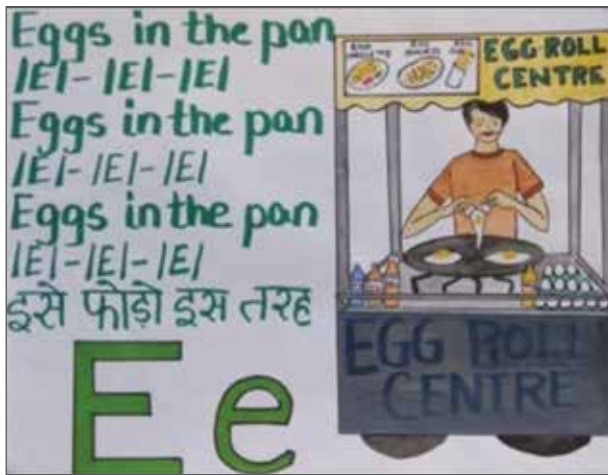 Eggs in the pan
|E|- |E|-|E|
Eggs in the pan
|E|- |E|- |E|
Eggs in the pan
|E|-|E|- |E|
इसे फोड़ो इस तरह
E e
EGG ROLL
CENTRE
EGG ROLL
CENTRE